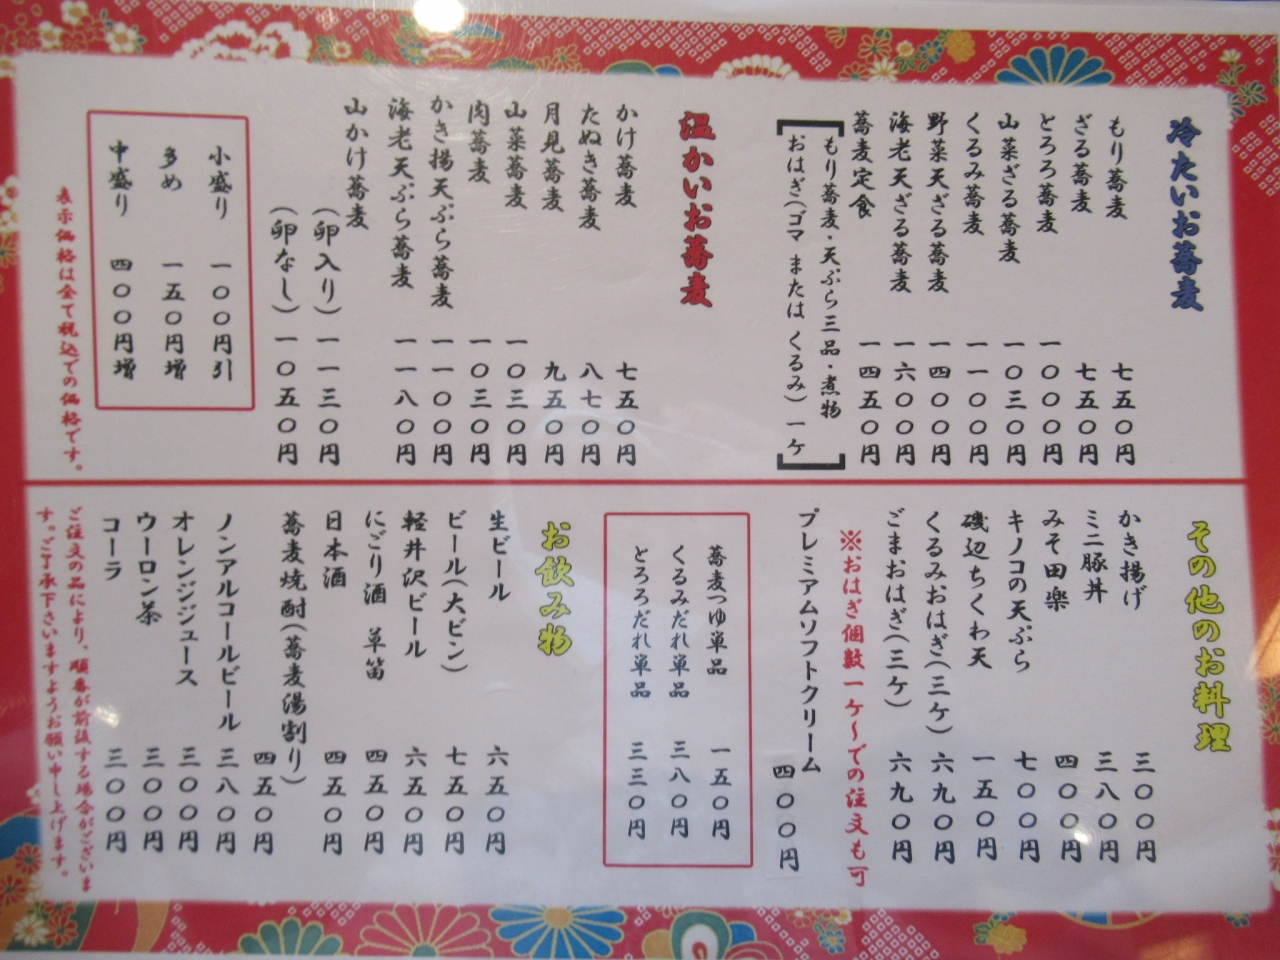 冷たいお蕎麦
もり蕎麦 七五〇円
ざる蕎麦 七五〇円
とろろ蕎麦 一〇〇〇円
山菜ざる蕎麦 一〇三〇円
くるみ蕎麦 一一〇〇円
野菜天ざる蕎麦 一四〇〇円
海老天ざる蕎麦 一六〇〇円
蕎麦定食 一四五〇円
もり蕎麦・天ぷら三品・煮物
おはぎ(ゴマ または くるみ)一ケ
温かいお蕎麦
かけ蕎麦 七五〇円
たぬき蕎麦 八七〇円
月見蕎麦 九五〇円
山菜蕎麦 一〇三〇円
肉蕎麦 一〇三〇円
かき揚天ぷら蕎麦 一一〇〇円
海老天ぷら蕎麦 一一八〇円
山かけ蕎麦
(卵入り) 一一三〇円
(卵なし) 一〇五〇円
小盛り 一〇〇円引
多め 一五〇円増
中盛り 四〇〇円増
表示価格は全て税込での価格です。
その他のお料理
かき揚げ 三〇〇円
ミニ豚丼 三八〇円
みそ田楽 四〇〇円
キノコの天ぷら 七〇〇円
磯辺ちくわ天 一五〇円
くるみおはぎ(三ケ) 六九〇円
ごまおはぎ(三ケ) 六九〇円
※おはぎ個数一ケ〜での注文も可
プレミアムソフトクリーム 四〇〇円
蕎麦つゆ単品 一五〇円
くるみだれ単品 三八〇円
とろろだれ単品 三三〇円
お飲み物
生ビール 六五〇円
ビール(大ビン) 七五〇円
軽井沢ビール 六五〇円
にごり酒 草笛 四五〇円
日本酒 四五〇円
蕎麦焼酎(蕎麦湯割り) 四五〇円
ノンアルコールビール 三八〇円
オレンジジュース 三〇〇円
ウーロン茶 三〇〇円
コーラ 三〇〇円
ご注文の品により、順番が前後する場合がございま
す。ご了承下さいますようお願い申し上げます。